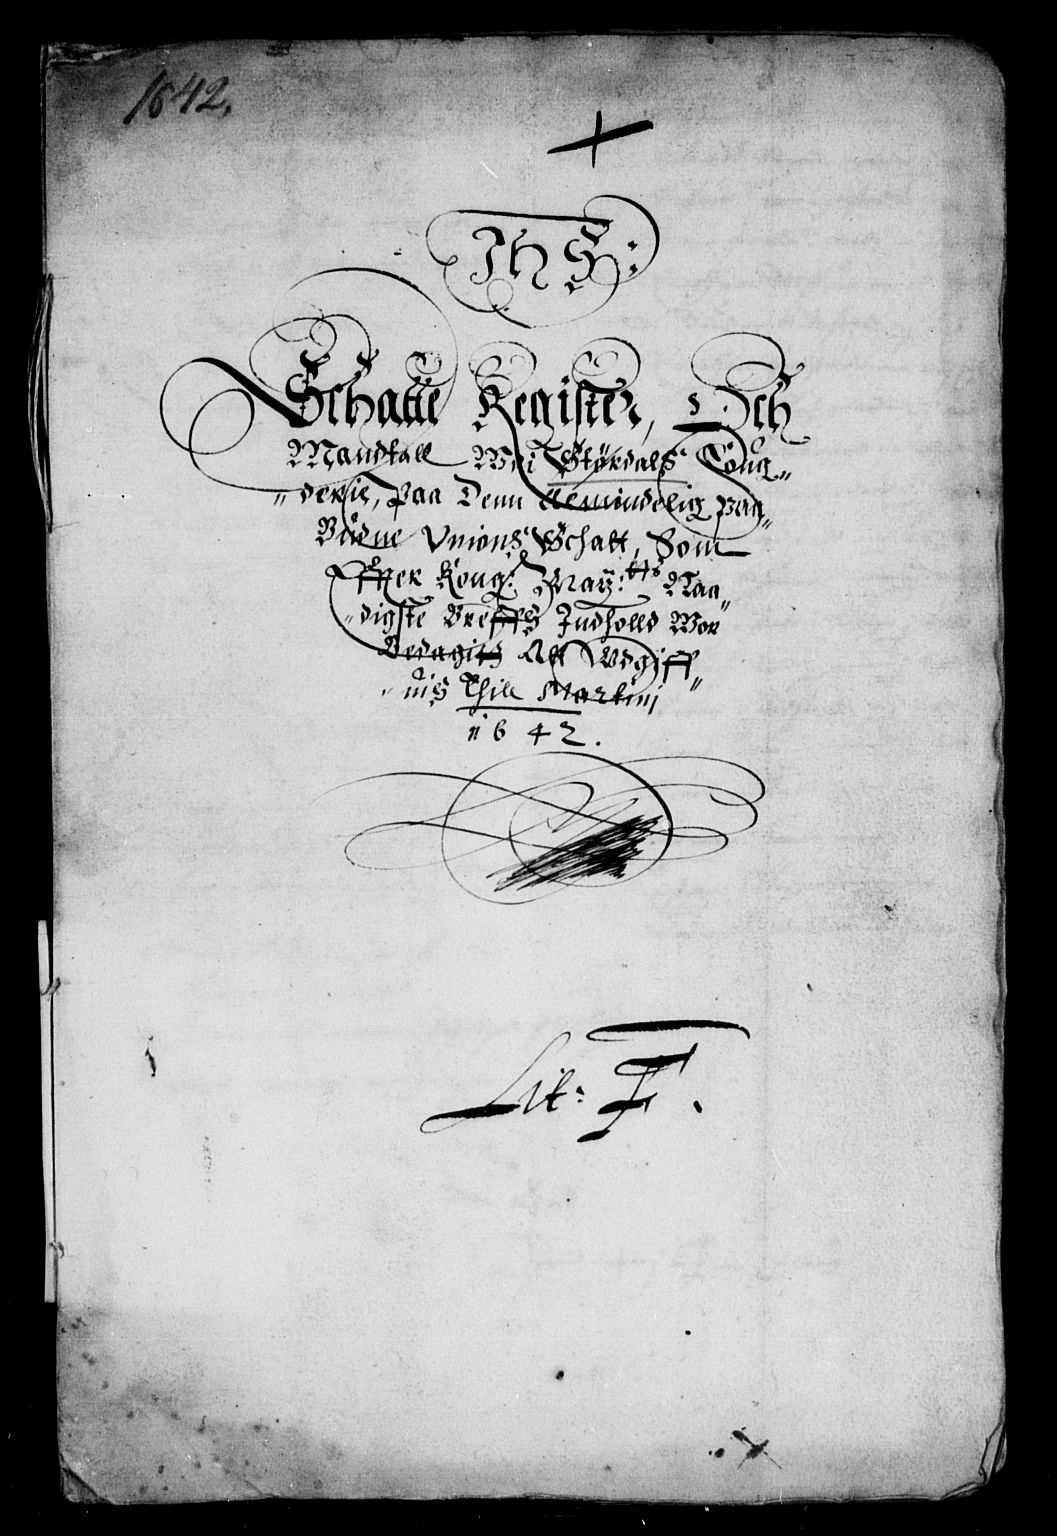 1642,
IHS:
Schatte Register, Och
Mandtall Wdi Størdals Foug„
„derie, paa Denn Almindelig paa„
Budne Vnions Schatt, Som
Effter Kong: May:tts Naa„
„digste Breffs Indholld Wor
Bedagitt Att Wdgiff„
„nis Thill Martinj
1642.
Lit: F.